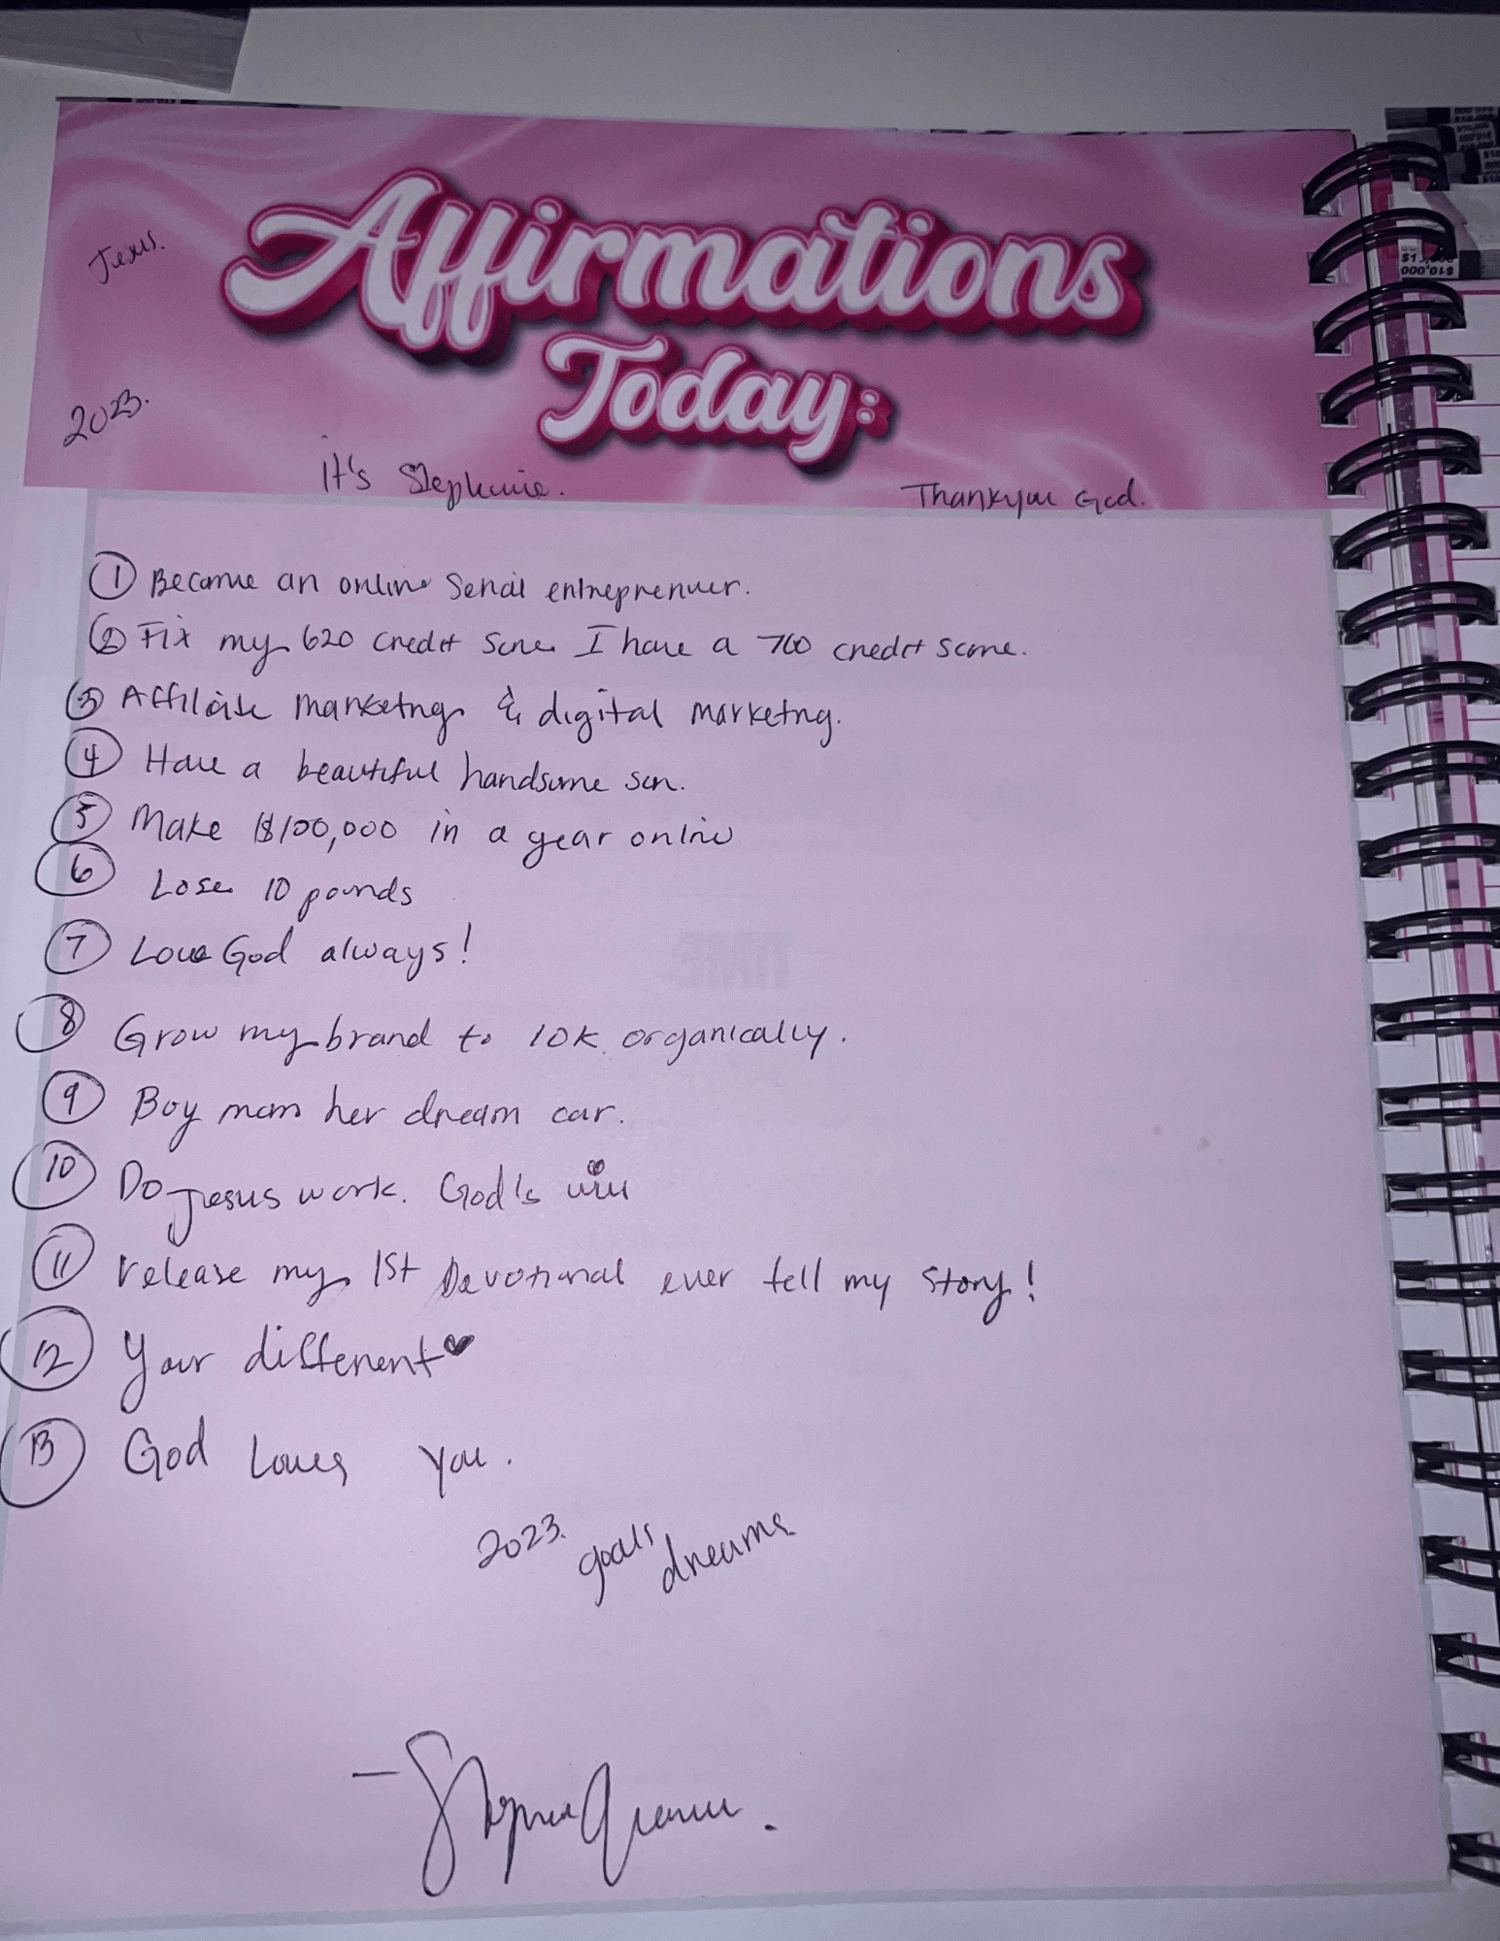 Affirmations
Jesus.
Today:
2023.
it's Stephanie.
Thankyou God.
① Become an online Serial entreprenuer.
② Fix my 620 credit score I have a 700 credit score.
③ Affiliate marketing & digital marketing.
④ Have a beautiful handsome son.
⑤ Make $100,000 in a year online
⑥ Lose 10 pounds
⑦ Love God always!
⑧ Grow my brand to 10K organically.
⑨ Buy mom her dream car.
⑩ Do Jesus work. God's will
⑪ release my 1st Devotional ever tell my story!
⑫ Your different♥
⑬ God Loves you.
2023. goals dreams
$10,000